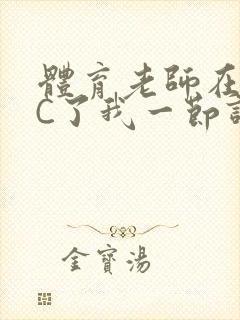 體育老師在
C了我一節
金寶湯